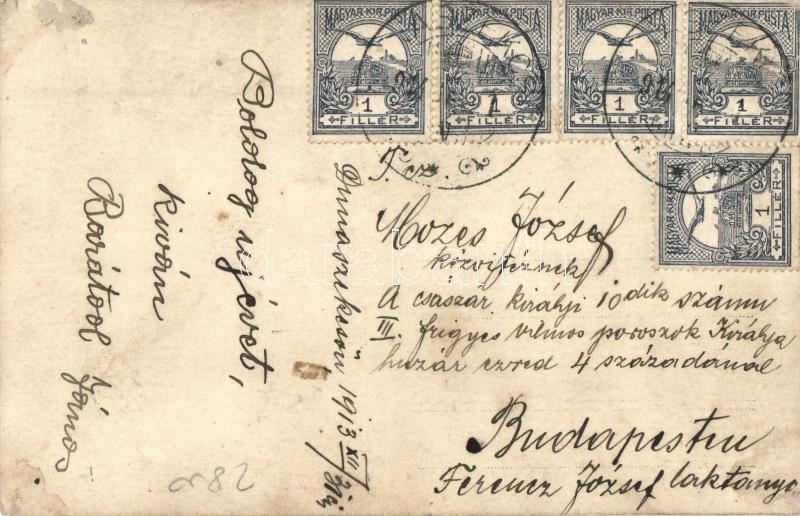 MAGYAR KIR. POSTA
1
FILLÉR
MAGYAR KIR. POSTA
1
FILLÉR
MAGYAR KIR. POSTA
1
FILLÉR
MAGYAR KIR. POSTA
1
FILLÉR
MAGYAR KIR. POSTA
1
FILLÉR
Boldog újévet,
kíván
Barátod János
Dunaszekcsőn 1913 XII/
T. cz.
Mozes József
közvitéznek
A csaszar királyi 10dik számu
III. frigyes vilmos poroszok Királya
huzár ezred 4 századánál
Budapesten
Ferencz József laktanya
82
darabanth